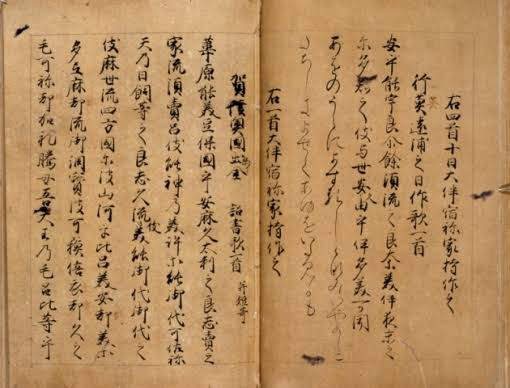 右四首十日大伴宿祢家持作之
行英遠浦之日作歌一首
安乎能宇良尓餘須流之良奈美伊夜末之
尓多知之伎与世久安由乎伊多美可聞
あをのうらによするしらなみいやましに
たちしきよせくあゆをいたみかも
右一首大伴宿祢家持作之
賀陸奥國出金 詔書歌一首 并短哥
葦原能美豆保國乎安麻久太利之良志賣之
家流須賣呂伎能神乃美許等能御代可佐祢
天乃日嗣等之良志久流伎美能御代御代之
伎麻世流四方國尓波山河乎比呂美安都美等
多弖麻都流御調寶波可蘓倍衣都久之
毛可祢都加礼騰母吾大王乃毛呂比登乎